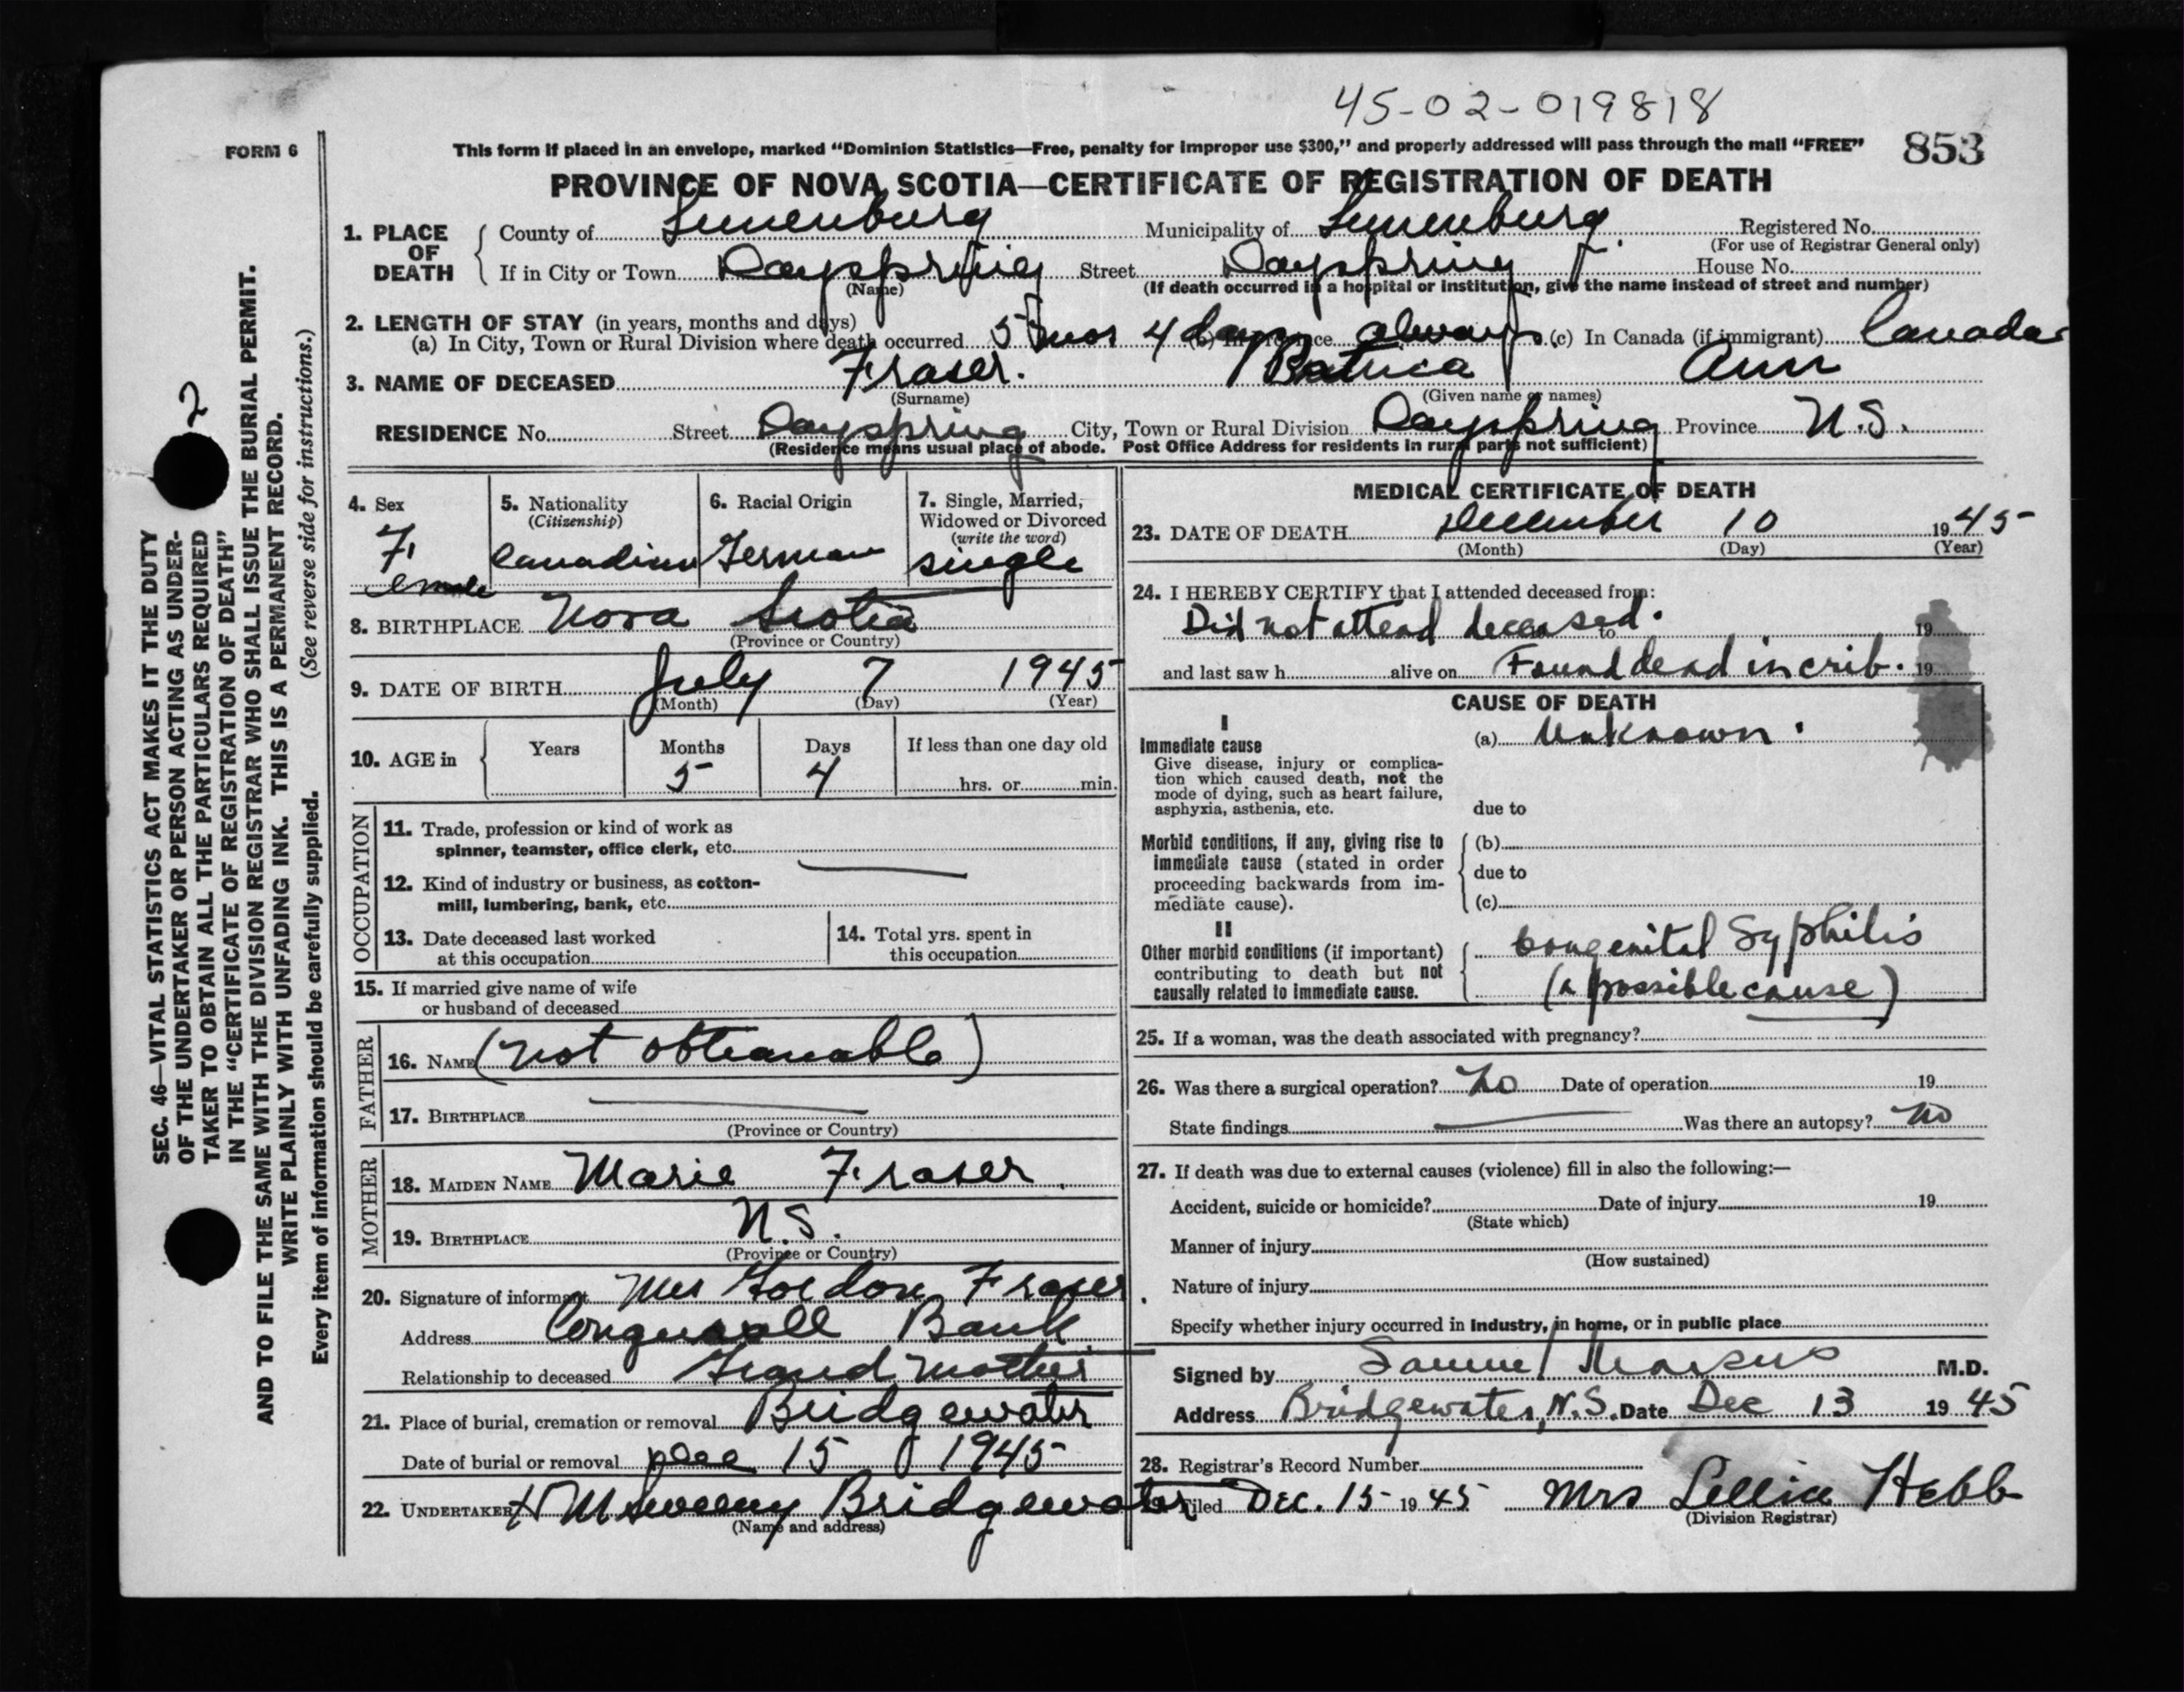 45-02-019818
FORM 6
This form if placed in an envelope, marked "Dominion Statistics—Free, penalty for improper use $300," and properly addressed will pass through the mail "FREE"
853
PROVINCE OF NOVA SCOTIA—CERTIFICATE OF REGISTRATION OF DEATH
1. PLACE OF DEATH
County of Lunenburg Municipality of Lunenburg Registered No.
(For use of Registrar General only)
If in City or Town Dayspring Street Dayspring House No.
(Name) (If death occurred in a hospital or institution, give the name instead of street and number)
2. LENGTH OF STAY (in years, months and days)
(a) In City, Town or Rural Division where death occurred 5 mos 4 days (b) In Province always (c) In Canada (if immigrant) Canada
3. NAME OF DECEASED Fraser. Patricia Ann
(Surname) (Given name or names)
RESIDENCE No. Street Dayspring City, Town or Rural Division Dayspring Province N.S.
(Residence means usual place of abode. Post Office Address for residents in rural parts not sufficient)
4. Sex
Female
5. Nationality
(Citizenship)
Canadian
6. Racial Origin
German
7. Single, Married, Widowed or Divorced
(write the word)
single
8. BIRTHPLACE Nova Scotia
(Province or Country)
9. DATE OF BIRTH July 7 1945
(Month) (Day) (Year)
10. AGE in Years Months Days If less than one day old
5 4 hrs. or min.
OCCUPATION
11. Trade, profession or kind of work as
spinner, teamster, office clerk, etc.
12. Kind of industry or business, as cotton-
mill, lumbering, bank, etc.
13. Date deceased last worked
at this occupation
14. Total yrs. spent in
this occupation
15. If married give name of wife
or husband of deceased
FATHER
16. NAME (not obteanable)
17. BIRTHPLACE
(Province or Country)
MOTHER
18. MAIDEN NAME Marie Fraser.
19. BIRTHPLACE N.S.
(Province or Country)
20. Signature of informant Mrs Gordon Fraser.
Address Bank
Relationship to deceased Grand Mother
21. Place of burial, cremation or removal Bridgewater
Date of burial or removal Dec 15 1945
22. UNDERTAKER Sweeny Bridgewater
(Name and address)
MEDICAL CERTIFICATE OF DEATH
23. DATE OF DEATH December 10 1945
(Month) (Day) (Year)
24. I HEREBY CERTIFY that I attended deceased from:
Did not attend deceased. to 19
and last saw h alive on Found dead in crib. 19
CAUSE OF DEATH
I
Immediate cause
Give disease, injury or complica-
tion which caused death, not the
mode of dying, such as heart failure,
asphyxia, asthenia, etc.
(a) Unknown.
due to
Morbid conditions, if any, giving rise to
immediate cause (stated in order
proceeding backwards from im-
mediate cause).
(b)
due to
(c)
II
Other morbid conditions (if important)
contributing to death but not
causally related to immediate cause.
Congenital Syphilis
(a possible cause)
25. If a woman, was the death associated with pregnancy?
26. Was there a surgical operation? No Date of operation 19
State findings Was there an autopsy? no
27. If death was due to external causes (violence) fill in also the following:—
Accident, suicide or homicide? Date of injury 19
(State which)
Manner of injury
(How sustained)
Nature of injury
Specify whether injury occurred in Industry, in home, or in public place
Signed by Samuel Marcus M.D.
Address Bridgewater, N.S. Date Dec 13 1945
28. Registrar's Record Number
Filed Dec. 15 1945 Mrs Lellia Hebb
(Division Registrar)
2
SEC. 46—VITAL STATISTICS ACT MAKES IT THE DUTY
OF THE UNDERTAKER OR PERSON ACTING AS UNDER-
TAKER TO OBTAIN ALL THE PARTICULARS REQUIRED
IN THE "CERTIFICATE OF REGISTRATION OF DEATH"
AND TO FILE THE SAME WITH THE DIVISION REGISTRAR WHO SHALL ISSUE THE BURIAL PERMIT.
WRITE PLAINLY WITH UNFADING INK. THIS IS A PERMANENT RECORD.
Every item of information should be carefully supplied. (See reverse side for instructions.)